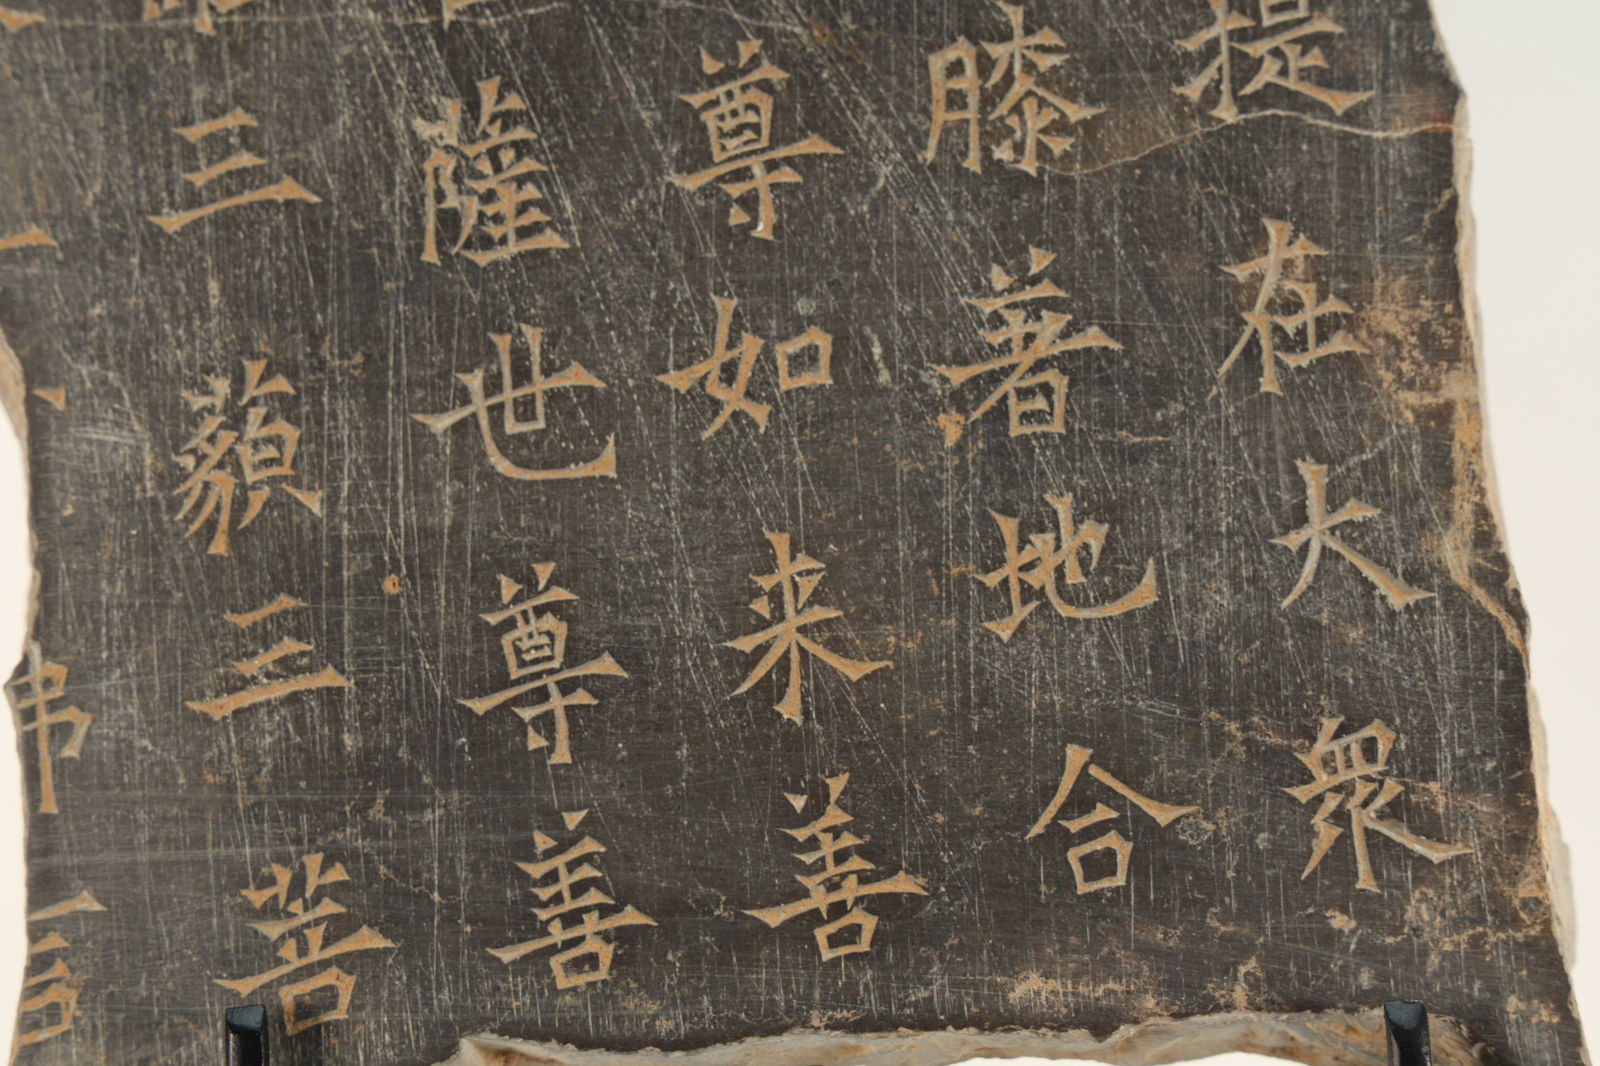 提在大衆
膝著地合
尊如来善
薩世尊善
三藐三菩